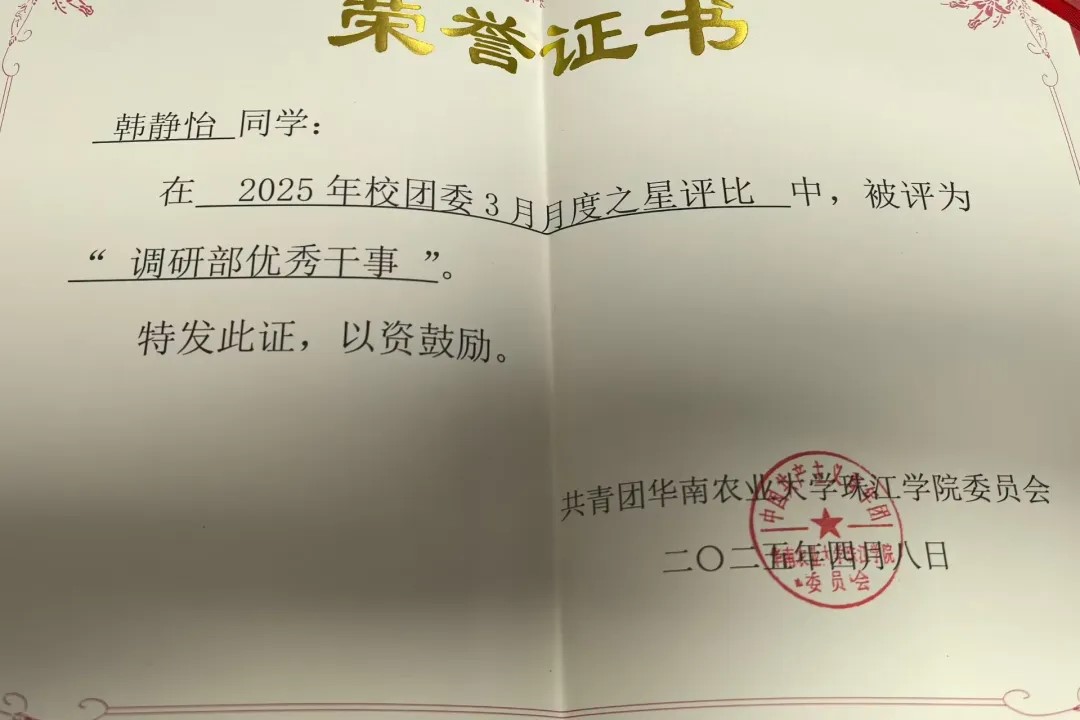 荣誉证书
韩静怡 同学：
在 2025 年校团委 3 月月度之星评比 中，被评为
“ 调研部优秀干事 ”。
特发此证，以资鼓励。
共青团华南农业大学珠江学院委员会
二〇二五年四月八日
中国共产主义青年团
华南农业大学珠江学院
委员会